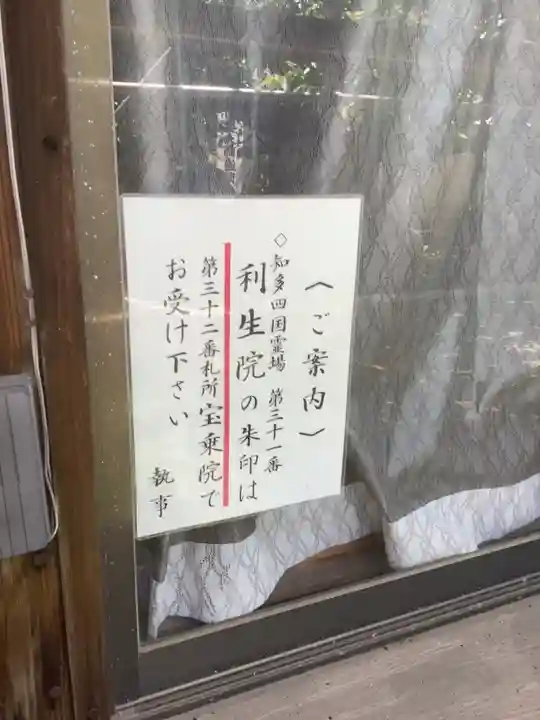 〈ご案内〉
◇知多四国霊場 第三十一番
利生院の朱印は
第三十二番札所宝乗院で
お受け下さい
執事